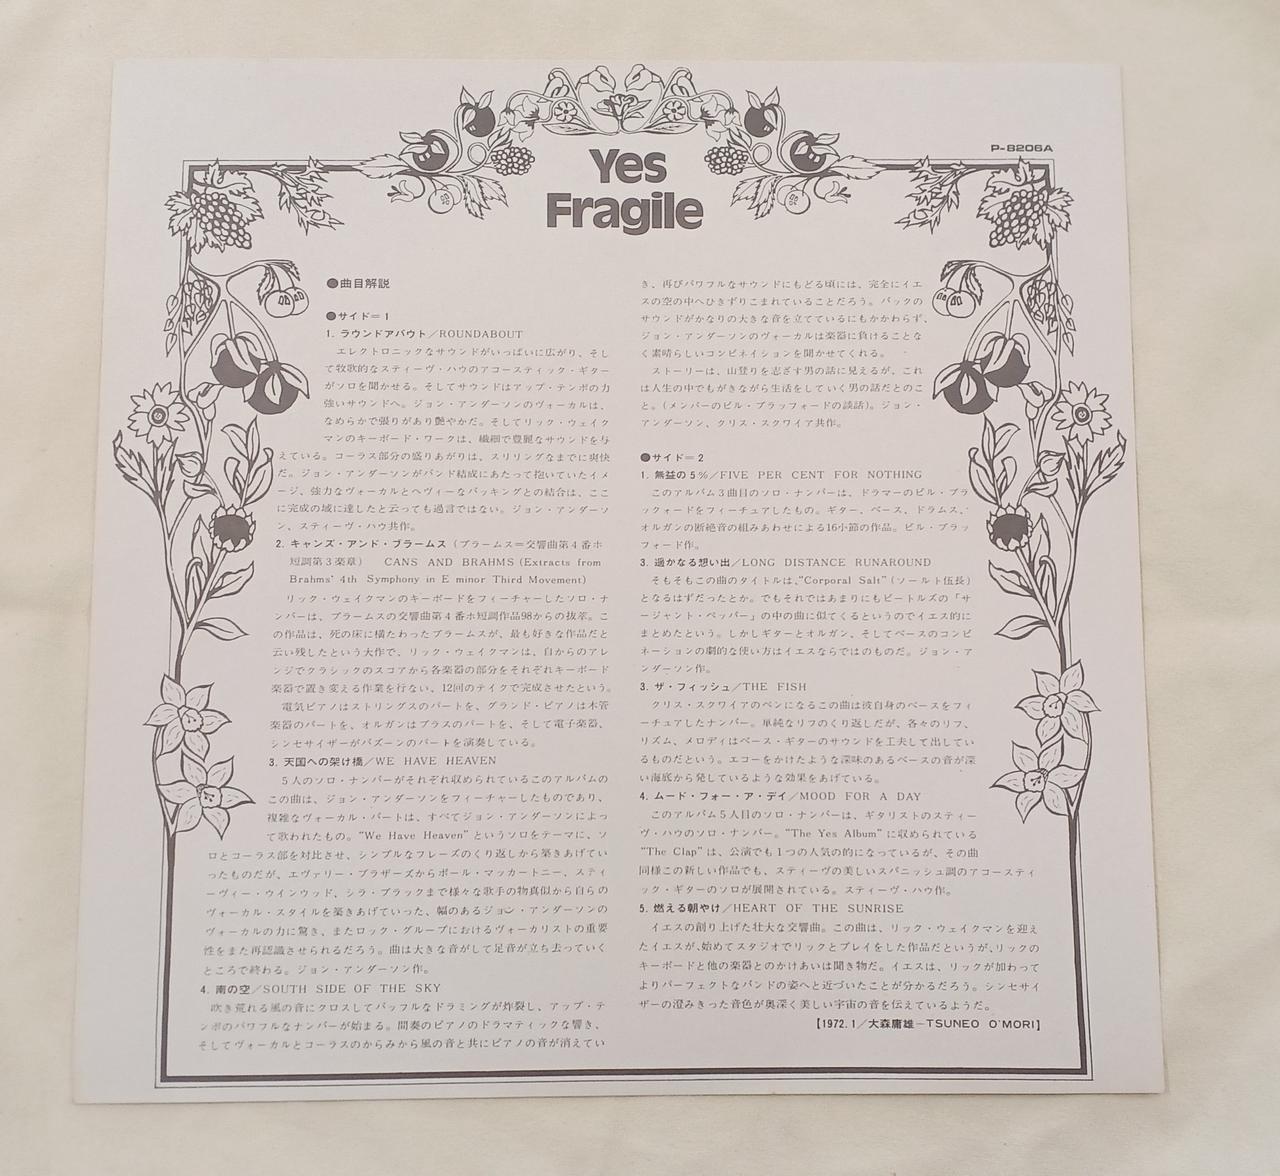 P-8206A
Yes
Fragile
●曲目解説
●サイド=1
1. ラウンドアバウト／ROUNDABOUT
エレクトロニックなサウンドがいっぱいに広がり、そし
て牧歌的なスティーヴ・ハウのアコースティック・ギター
がソロを聞かせる。そしてサウンドはアップ・テンポの力
強いサウンドへ。ジョン・アンダーソンのヴォーカルは、
なめらかで張りがあり艶やかだ。そしてリック・ウェイク
マンのキーボード・ワークは、繊細で豊麗なサウンドを与
えている。コーラス部分の盛りあがりは、スリリングなまでに爽快
だ。ジョン・アンダーソンがバンド結成にあたって抱いていたイメ
ージ、強力なヴォーカルとヘヴィーなバッキングとの結合は、ここ
に完成の域に達したと云っても過言ではない。ジョン・アンダーソ
ン、スティーヴ・ハウ共作。
2. キャンズ・アンド・ブラームス（ブラームス=交響曲第4番ホ
短調第3楽章） CANS AND BRAHMS (Extracts from
Brahms' 4th Symphony in E minor Third Movement)
リック・ウェイクマンのキーボードをフィーチュアしたソロ・ナ
ンバーは、ブラームスの交響曲第4番ホ短調作品98からの抜萃。こ
の作品は、死の床に横たわったブラームスが、最も好きな作品だと
云い残したという大作で、リック・ウェイクマンは、自からのアレ
ンジでクラシックのスコアから各楽器の部分をそれぞれキーボード
楽器で置き変える作業を行ない、12回のテイクで完成させたという。
電気ピアノはストリングスのパートを、グランド・ピアノは木管
楽器のパートを、オルガンはブラスのパートを、そして電子楽器、
シンセサイザーがバズーンのパートを演奏している。
3. 天国への架け橋／WE HAVE HEAVEN
5人のソロ・ナンバーがそれぞれ収められているこのアルバムの
この曲は、ジョン・アンダーソンをフィーチャーしたものであり、
複雑なヴォーカル・パートは、すべてジョン・アンダーソンによっ
て歌われたもの。“We Have Heaven”というソロをテーマに、ソ
ロとコーラス部を対比させ、シンプルなフレーズのくり返しから築きあげてい
ったものだが、エヴァリー・ブラザーズからポール・マッカートニー、スティ
ーヴィー・ウインウッド、シラ・ブラックまで様々な歌手の物真似から自らの
ヴォーカル・スタイルを築きあげていった、幅のあるジョン・アンダーソンの
ヴォーカルの力に驚き、またロック・グループにおけるヴォーカリストの重要
性をまた再認識させられるだろう。曲は大きな音がして足音が立ち去っていく
ところで終わる。ジョン・アンダーソン作。
4. 南の空／SOUTH SIDE OF THE SKY
吹き荒れる風の音にクロスしてパッフルなドラミングが炸裂し、アップ・テ
ンポのパワフルなナンバーが始まる。間奏のピアノのドラマティックな響き、
そしてヴォーカルとコーラスのからみから風の音と共にピアノの音が消えてい
き、再びパワフルなサウンドにもどる頃には、完全にイエ
スの空の中へひきずりこまれていることだろう。バックの
サウンドがかなりの大きな音を立てているにもかかわらず、
ジョン・アンダーソンのヴォーカルは楽器に負けることな
く素晴らしいコンビネイションを聞かせてくれる。
ストーリーは、山登りを志ざす男の話に見えるが、これ
は人生の中でもがきながら生活をしていく男の話だとのこ
と。（メンバーのビル・ブラッフォードの談話）。ジョン・
アンダーソン、クリス・スクワイア共作。
●サイド=2
1. 無益の5％／FIVE PER CENT FOR NOTHING
このアルバム3曲目のソロ・ナンバーは、ドラマーのビル・ブラ
ックォードをフィーチュアしたもの。ギター、ベース、ドラムス、
オルガンの断絶音の組みあわせによる16小節の作品。ビル・ブラッ
フォード作。
3. 遥かなる想い出／LONG DISTANCE RUNAROUND
そもそもこの曲のタイトルは、“Corporal Salt”（ソールト伍長）
となるはずだったとか。でもそれではあまりにもビートルズの「サ
ージャント・ペッパー」の中の曲に似てくるというのでイエス的に
まとめたという。しかしギターとオルガン、そしてベースのコンビ
ネーションの劇的な使い方はイエスならではのものだ。ジョン・ア
ンダーソン作。
3. ザ・フィッシュ／THE FISH
クリス・スクワイアのペンになるこの曲は彼自身のベースをフィ
ーチュアしたナンバー。単純なリフのくり返しだが、各々のリフ、
リズム、メロディはベース・ギターのサウンドを工夫して出してい
るものだという。エコーをかけたような深味のあるベースの音が深
い海底から発しているような効果をあげている。
4. ムード・フォー・ア・デイ／MOOD FOR A DAY
このアルバム5人目のソロ・ナンバーは、ギタリストのスティー
ヴ・ハウのソロ・ナンバー。“The Yes Album”に収められている
“The Clap”は、公演でも1つの人気の的になっているが、その曲
同様この新しい作品でも、スティーヴの美しいスパニッシュ調のアコースティ
ック・ギターのソロが展開されている。スティーヴ・ハウ作。
5. 燃える朝やけ／HEART OF THE SUNRISE
イエスの創り上げた壮大な交響曲。この曲は、リック・ウェイクマンを迎え
たイエスが、始めてスタジオでリックとプレイをした作品だというが、リックの
キーボードと他の楽器とのかけあいは聞き物だ。イエスは、リックが加わって
よりパーフェクトなバンドの姿へと近づいたことが分かるだろう。シンセサイ
ザーの澄みきった音色が奥深く美しい宇宙の音を伝えているようだ。
【1972.1／大森庸雄－TSUNEO O'MORI】